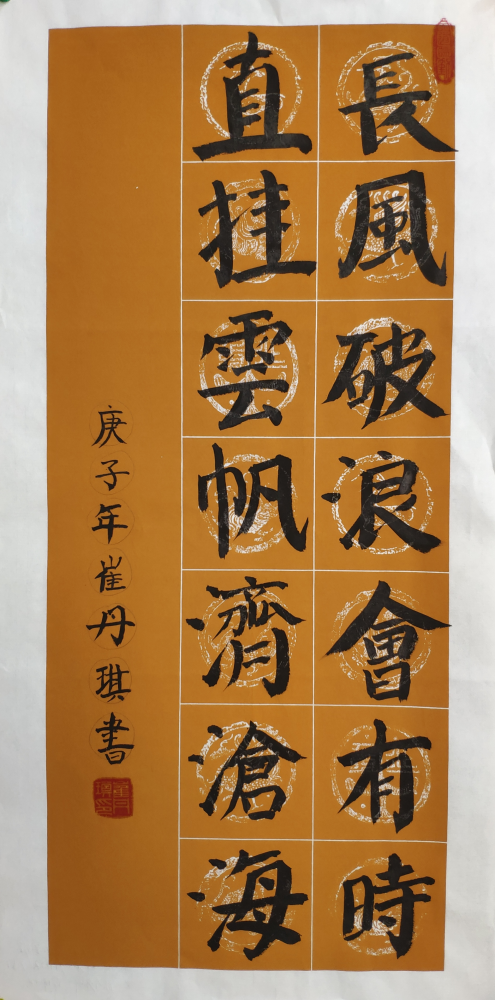 長風破浪會有時
直挂雲帆濟滄海
庚子年崔丹琪書